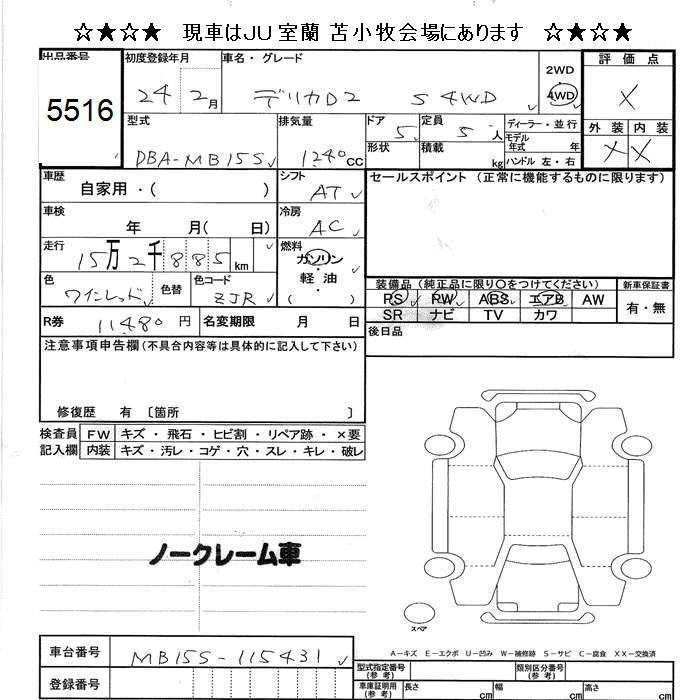 ☆★☆★ 現車はJU室蘭 苫小牧会場にあります ☆★☆★
出品番号 初度登録年月 車名・グレード 2WD 評価点
5516 24年 2月 デリカD2 S 4WD 4WD X
型式 排気量 ドア 定員 ディーラー・並行 外装 内装
DBA-MB15S 1240cc 5 5人 モデル年式 年 X X
形状 積載 kg ハンドル 左・右
車歴 シフト セールスポイント (正常に機能するものに限ります)
自家用・( ) AT
車検 冷房
年 月( 日) AC
走行 燃料
15万2千885km ガソリン
軽油
( )
色 色替 色コード 装備品 (純正品に限り〇をつけてください) 新車保証書
ワインレッド ZJR PS PW ABS エアB AW 有・無
SR ナビ TV カワ
R券 11480円 名変期限 月 日 後日品
注意事項申告欄(不具合内容等は具体的に記入して下さい)
修復歴 有 〔箇所 〕
検査員 FW キズ・飛石・ヒビ割・リペア跡・×要
記入欄 内装 キズ・汚レ・コゲ・穴・スレ・キレ・破レ
ノークレーム車
スペア
A-キズ E-エクボ U-凹み W-補修跡 S-サビ C-腐食 XX-交換済
車台番号 MB15S-115431 型式指定番号(参考) 類別区分番号(参考)
登録番号 車庫証明用(参考) 長さ cm 幅 cm 高さ cm